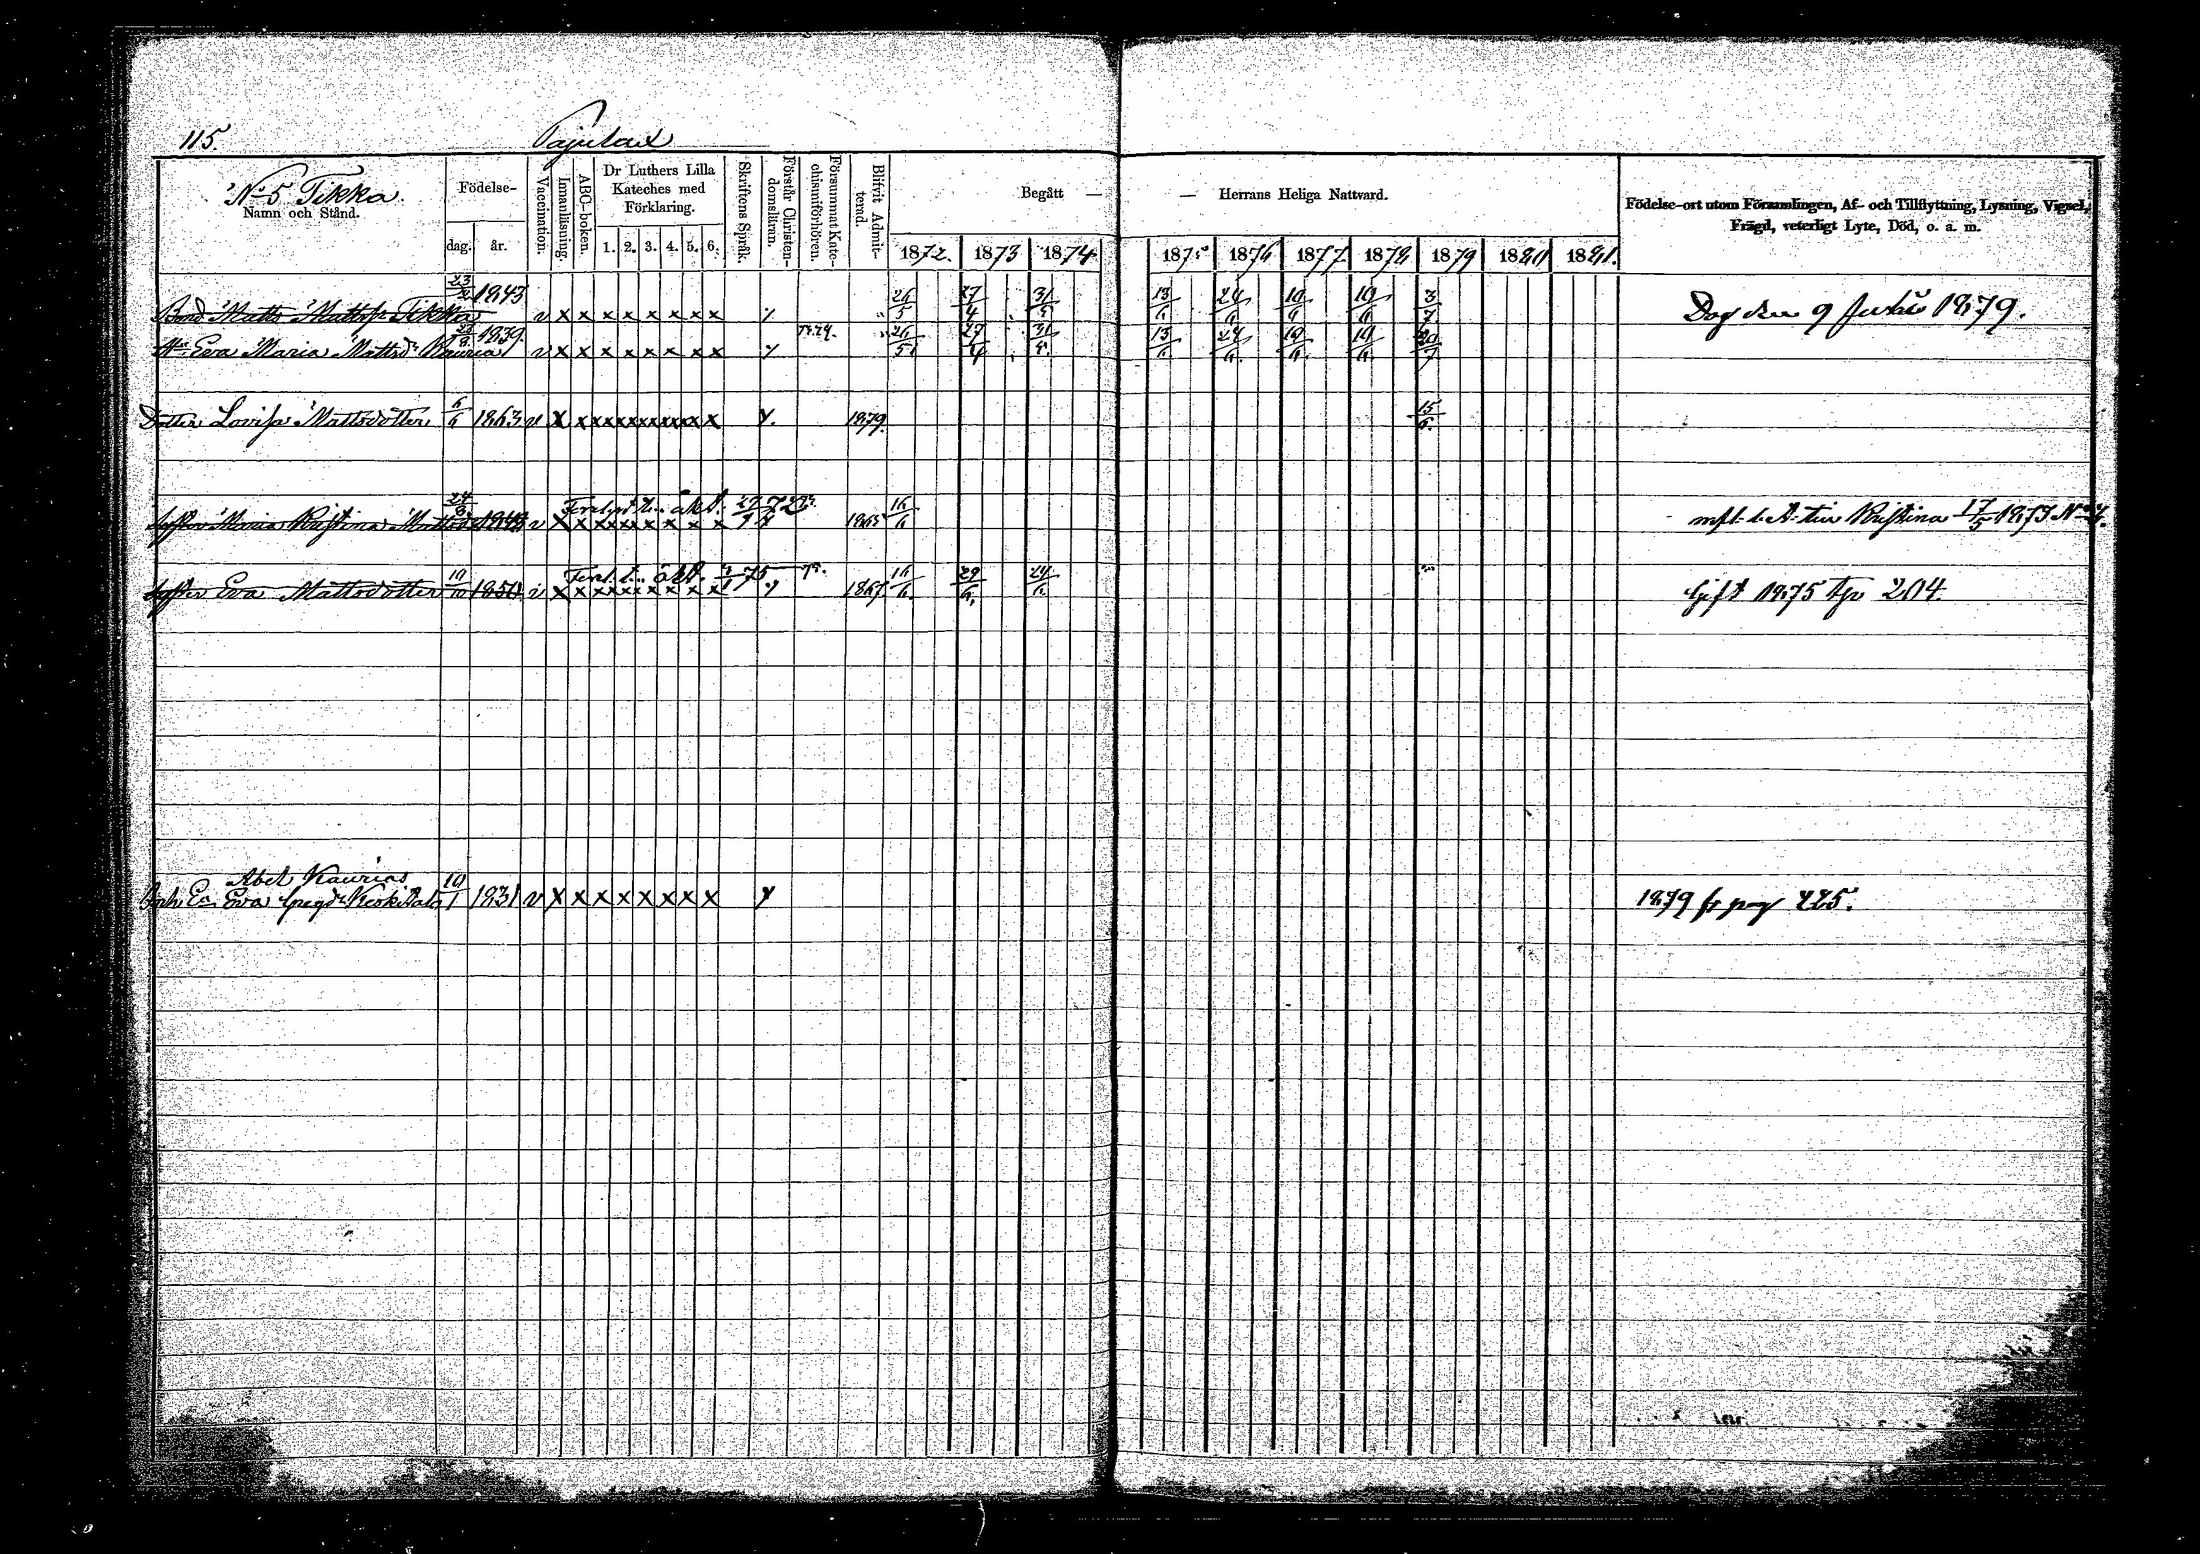 115. Pajulax
N:o 5 Tikka.
Namn och Stånd.
Födelse-
dag. år.
Vaccination.
Innanläsning.
ABC-boken.
Dr Luthers Lilla
Kateches med
Förklaring.
1. 2. 3. 4. 5. 6.
Skriftens Språk.
Förstår Christen-
domsläran.
Försummat Kate-
chismiförhören.
Blifvit Admit-
terad.
Begått — — Herrans Heliga Nattvard.
1872. 1873 1874 1875 1876 1877 1878 1879 1880 1881.
Födelse-ort utom Församlingen, Af- och Tillflyttning, Lysning, Vigsel,
Frägd, veterligt Lyte, Död, o. a. m.
Bond Matts Mattss Tikka 23/2 1843 v x x x x x x x x 26/5 27/4 31/5 13/6 24/6 10/6 10/6 3/7 Dog den 9 Julii 1879.
Hu Eva Maria Mattsdr Kauria 1839. v x x x x x x x x 26/5 27/4 31/5 13/6 24/6 10/6 10/6 20/7
Dotter Lovisa Mattsdotter 6/6 1863 v x x x x x x x x x x x 1879. 15/6
Syster Maria Kristina Mattsdr 24/6 1848 v x x x x x x x x 1865 16/6 Kristina 17/5 1873 No 24.
Syster Eva Mattsdotter 10/10 1850 v x x x x x x x x 1867 16/6 29/6 24/6 Gift 1875 204.
Abel Kaurias
Enk. Eva Gregdr Keskitalo 10/1 1831 v x x x x x x x x 1879 fr pag 225.